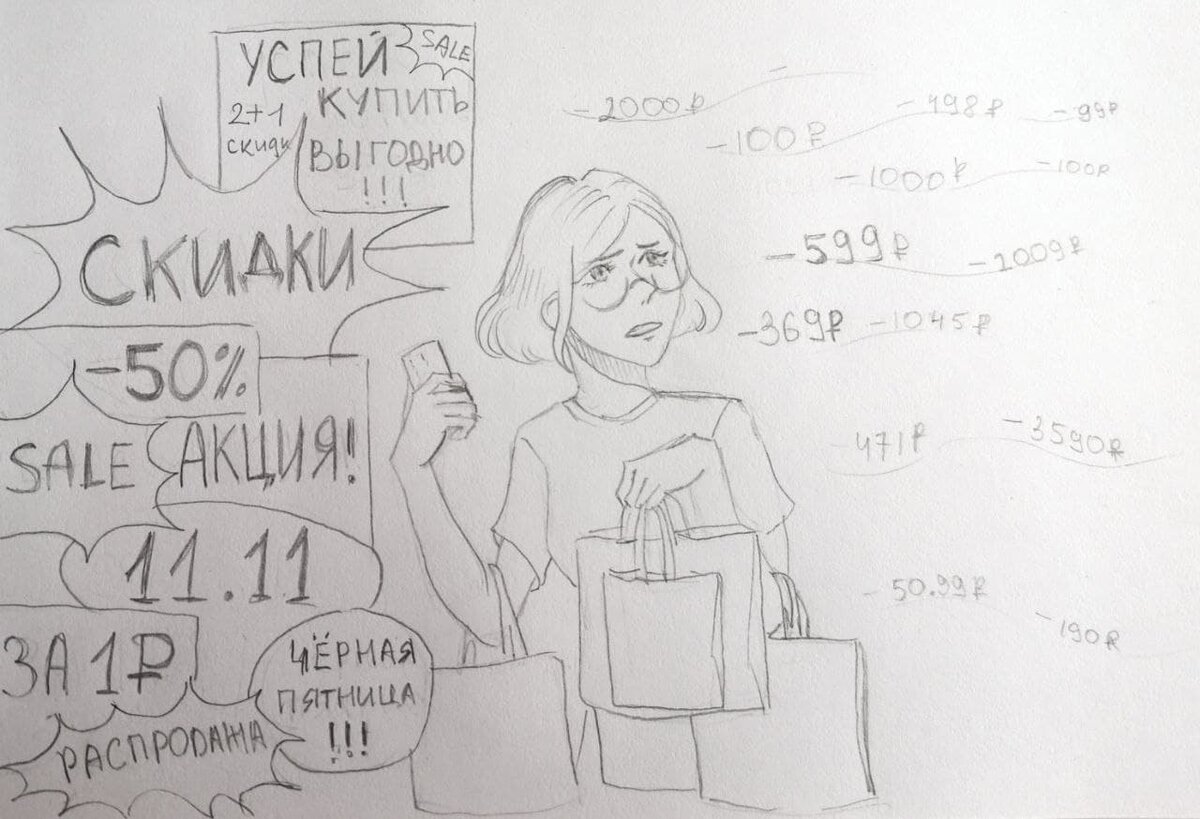 УСПЕЙ
SALE
КУПИТЬ
2+1
скидки
ВЫГОДНО
!!!
СКИДКИ
-50%
SALE
АКЦИЯ!
11.11
ЗА 1₽
ЧЁРНАЯ
ПЯТНИЦА
!!!
РАСПРОДАЖА
-2000₽
-100₽
-498₽
-99₽
-1000₽
-100₽
-599₽
-2009₽
-369₽
-1045₽
-471₽
-3590₽
-50.99₽
-190₽